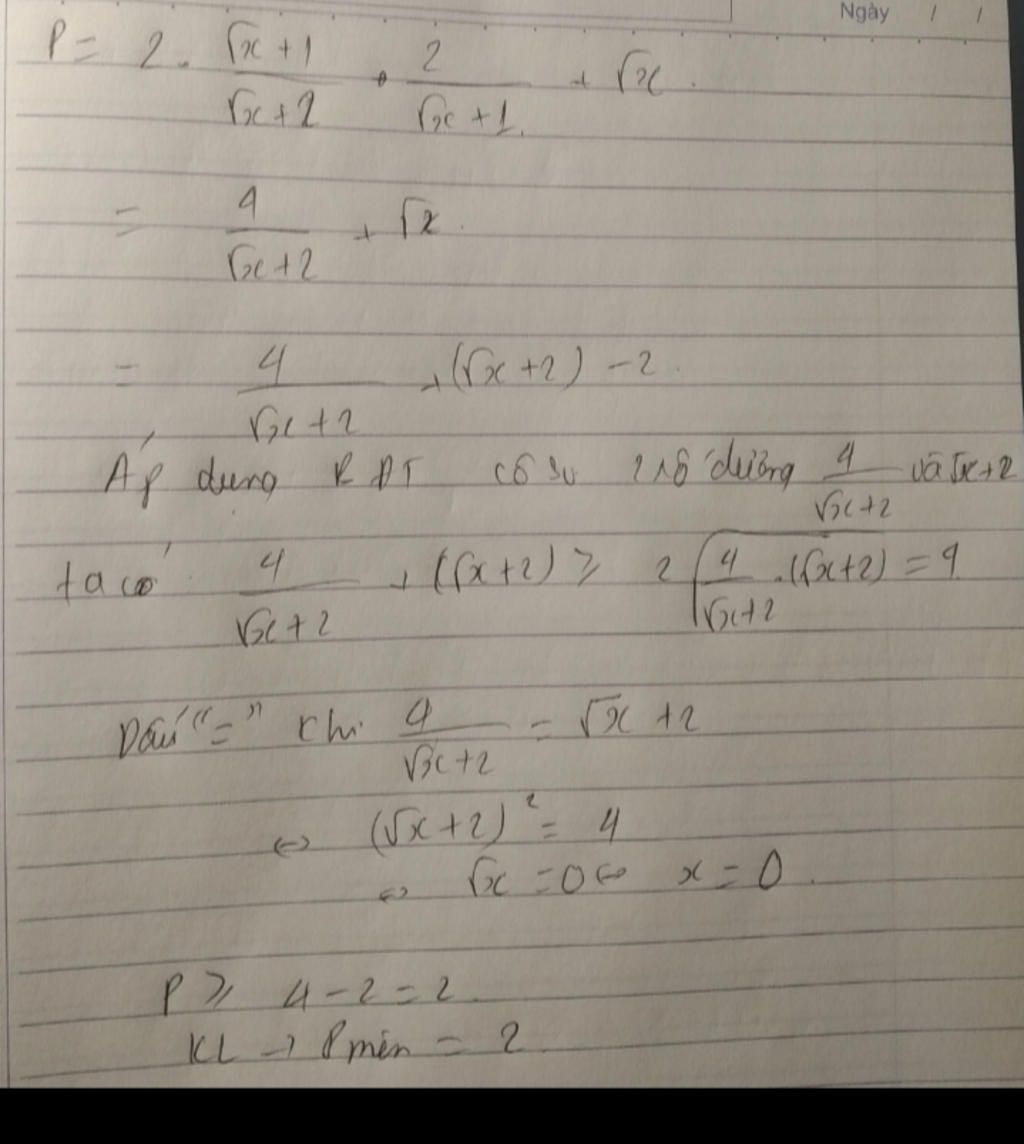 Ngày / /
P = 2 . (√x + 1)/(√x + 2) . 2/(√x + 1) + √x .
= 4/(√x + 2) + √x .
= 4/(√x + 2) + (√x + 2) - 2 .
Áp dụng BĐT cô si 2 số dương 4/(√x + 2) và √x + 2
ta có 4/(√x + 2) + (√x + 2) ≥ 2√(4/(√x + 2) . (√x + 2)) = 4
Dấu "=" khi 4/(√x + 2) = √x + 2
⇔ (√x + 2)² = 4
⇔ √x = 0 ⇔ x = 0 .
P ≥ 4 - 2 = 2 .
KL → Pmin = 2